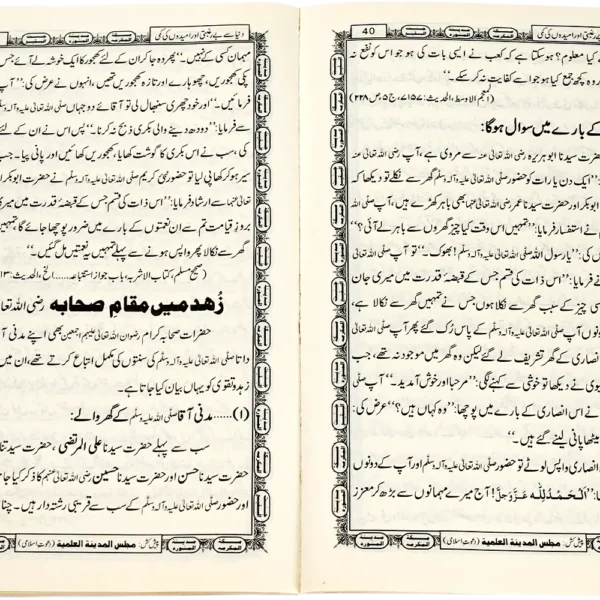 40
بے رغبتی اور امیدوں کی کمی
کیا معلوم؟ ہوسکتا ہے کہ کعب نے ایسی بات کی ہو جو اس کو نفع نہ
وہ کچھ جمع کیا ہو جو اسے کفایت نہ کر سکے۔‘‘
(المعجم الاوسط، الحدیث:۷۱۵۷، ج۵، ص۲۲۸)
کے بارے میں سوال ہوگا:
حضرت سیدنا ابو ہریرہ رضی اللہ تعالیٰ عنہ سے مروی ہے، آپ رضی اللہ تعالیٰ
’’ایک دن یا رات کو حضور صلی اللہ تعالیٰ علیہ وآلہ وسلم گھر سے نکلے تو دیکھا کہ
ابوبکر اور حضرت سیدنا عمر رضی اللہ تعالیٰ عنہما بھی باہر کھڑے ہیں، آپ صلی
نے استفسار فرمایا: ’’تمہیں اس وقت کیا چیز گھروں سے باہر لے آئی؟‘‘
کی: ’’یا رسول اللہ صلی اللہ تعالیٰ علیہ وآلہ وسلم! بھوک۔‘‘ تو آپ صلی
فرمایا: ’’اس ذات کی قسم جس کے قبضۂ قدرت میں میری جان
اسی چیز کے سبب گھر سے نکلا ہوں جس نے تمہیں گھر سے نکالا ہے،
انصاری کے گھر تشریف لے گئے لیکن وہ گھر میں موجود نہ تھے، جب
بیوی نے دیکھا تو خوشی سے کہنے لگی: ’’مرحبا اور خوش آمدید۔‘‘ آپ صلی
نے اس انصاری کے بارے میں پوچھا: ’’وہ کہاں ہیں؟‘‘ عرض کی:
میٹھا پانی لینے گئے ہیں۔‘‘
انصاری واپس لوٹے تو حضور صلی اللہ تعالیٰ علیہ وآلہ وسلم اور آپ کے دونوں
’’اَلْحَمْدُ لِلّٰه عَزَّوَجَلَّ! آج میرے مہمانوں سے بڑھ کر معزز
پیش کش: مجلس المدینة العلمیة (دعوت اسلامی)
دنیا سے بے رغبتی اور امیدوں کی کمی
مہمان کسی کے نہیں۔‘‘ پھر وہ جا کر ان کے لئے کھجور کا ایک خوشہ لے آئے جس
پکی کھجوریں، چھوہارے اور تازہ کھجوریں تھیں، انہوں نے عرض کی: ’’آپ
فرمائیں۔‘‘ اور خود چھری سنبھال لی تو آقائے دو جہاں صلی اللہ تعالیٰ علیہ وآلہ وسلم
سے فرمایا: ’’دودھ دینے والی بکری ذبح نہ کرنا۔‘‘ پس اس نے ان کے لئے
کی، سب نے اس بکری کا گوشت کھایا، کھجوریں کھائیں اور پانی پیا۔ جب
سیر ہو کر کھا پی لیا تو حضور نبی کریم صلی اللہ تعالیٰ علیہ وآلہ وسلم نے حضرت ابوبکر
عنہما سے ارشاد فرمایا: ’’اس ذات کی قسم جس کے قبضۂ قدرت میں میری
بروزِ قیامت تم سے ان نعمتوں کے بارے میں ضرور پوچھا جائے گا، تمہیں
گھر سے نکالا پھر واپس ہونے سے پہلے تمہیں یہ نعمتیں مل گئیں۔‘‘
(صحیح مسلم، کتاب الاشربہ، باب جواز استتباعہ......الخ، الحدیث:
زُهد میں مقامِ صحابه رضی اللہ تعالیٰ
حضرات صحابہ کرام رضوان اللہ تعالیٰ علیہم اجمعین بھی اپنے مدنی آقا
داتا صلی اللہ تعالیٰ علیہ وآلہ وسلم کی سنتوں کی مکمل اتباع کرتے تھے، ان میں
زہد و تقویٰ کو یہاں بیان کیا جاتا ہے۔
(۱)......مدنی آقا صلی اللہ تعالیٰ علیہ وسلم کے گھر والے:
سب سے پہلے حضرت سیدنا علی المرتضٰی، حضرت سیدتنا
حضرت سیدنا حسن اور حضرت سیدنا حسین رضی اللہ تعالیٰ عنہم کا ذکر کیا جا
اور حضور صلی اللہ تعالیٰ علیہ وآلہ وسلم کے سب سے قریبی رشتہ دار ہیں۔ چنا
پیش کش: مجلس المدینة العلمیة (دعوت اسلامی)